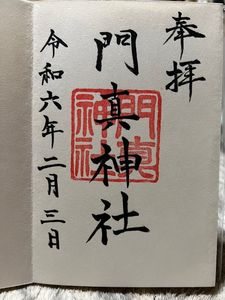 奉拝
門真神社
門真
神社
令和六年二月三日